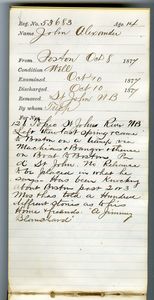 Reg. No. 53683 Age 14
Name John Alexander
From Boston Oct 8 1877
Condition Well
Examined Oct 10 1877
Discharged Oct 10 1877
Removed St John NB
By whom
St Johns River NB
Left there last spring came
to Boston on a
Machias & Bangor & thence
on Boat to Boston
St John. No Chance
to be placed in what he
says. Has been knocking
about Boston past 2 or 3
Mos has told a hundred
different stories as to his
Home & friends. A Jimmy
Blanchard